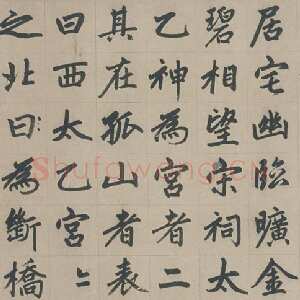 居宅幽臨曠金
碧相望宗祠太
乙神為宮者二
其在孤山者表
曰西太乙宮〻
之北曰為斷橋
Shufawang.CN